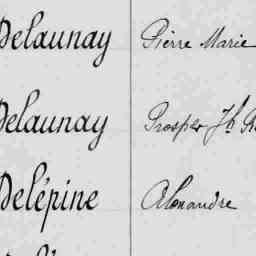 Delaunay Pierre Marie
Delaunay Prosper Jh
Delépine Alexandre